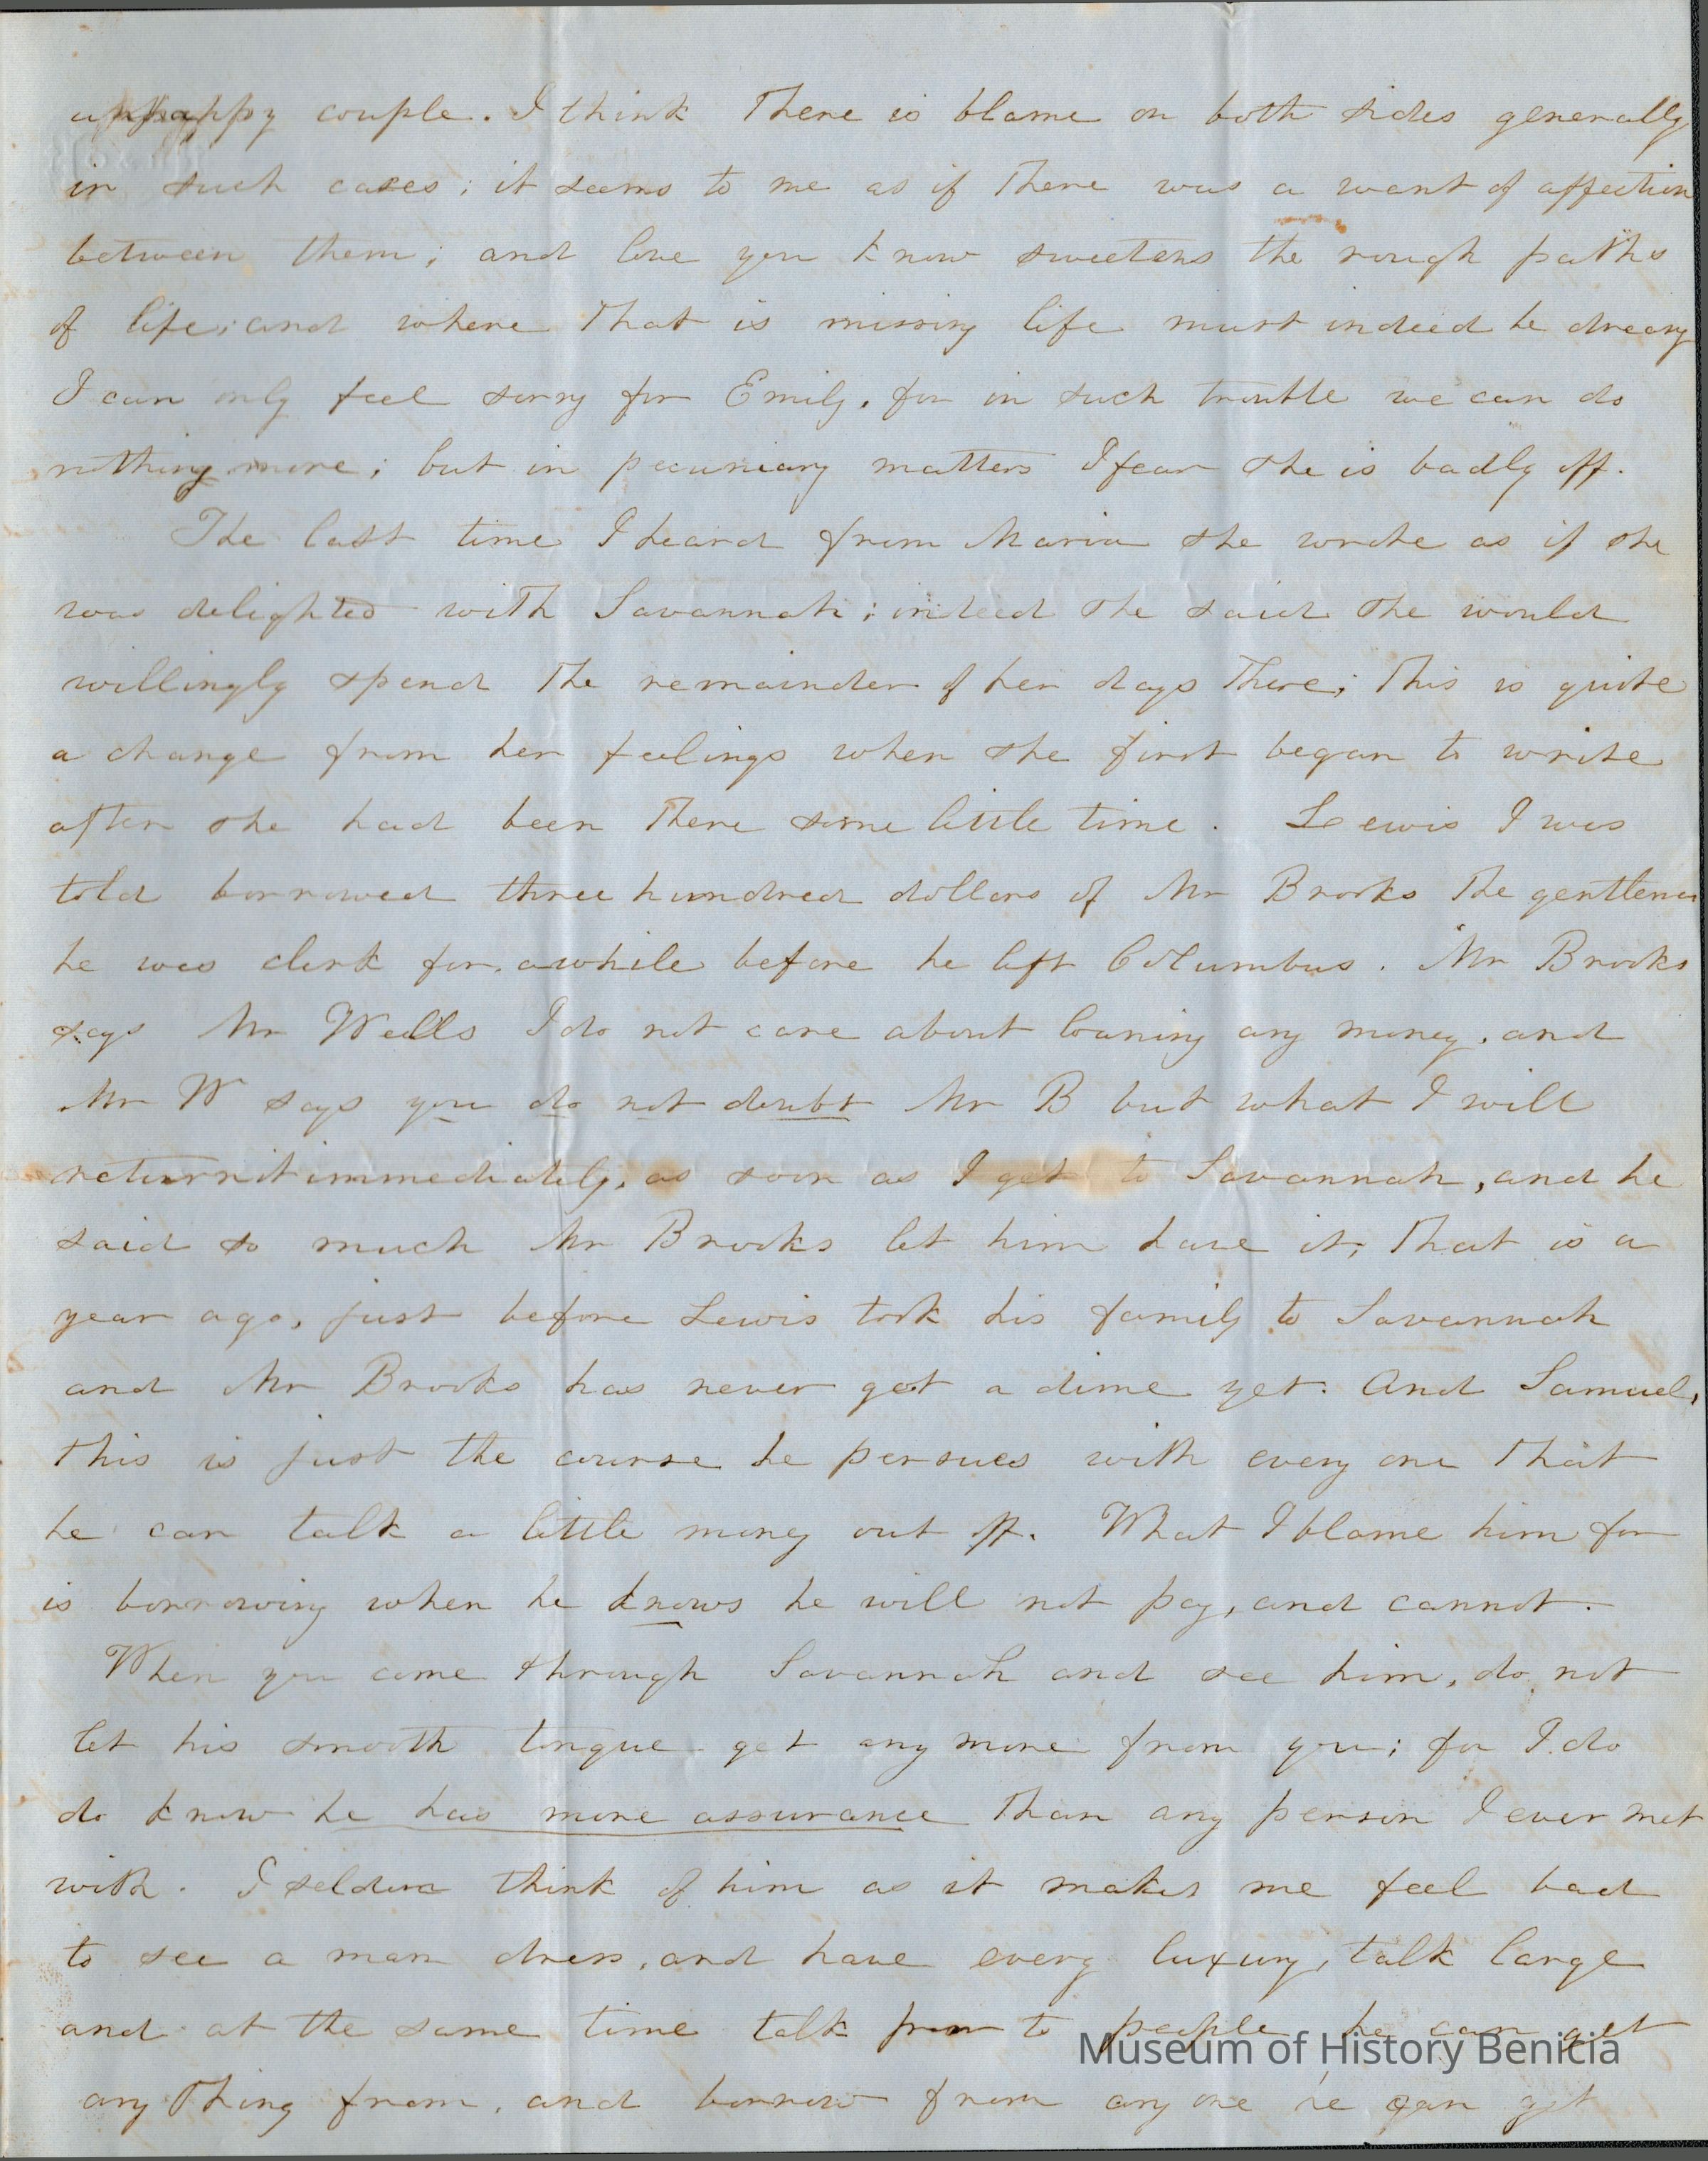 unhappy couple. I think There is blame on both sides generally
in such cases; it seems to me as if There was a want of affection
between them; and love you know sweetens the rough paths
of life; and where That is missing life must indeed be dreary
I can only feel sorry for Emily, for in such trouble we can do
nothing more; but in pecuniary matters I fear she is badly off.
The last time I heard from Maria she wrote as if she
was delighted with Savannah; indeed she said she would
willingly spend The remainder of her days There; This is quite
a change from her feelings when she first began to write
after she had been There some little time. Lewis I was
told borrowed three hundred dollars of Mr Brooks The gentleman
he was clerk for, awhile before he left Columbus. Mr Brooks
says Mr Wells I do not care about loaning any money, and
Mr W says you do not doubt Mr B but what I will
return it immediately, as soon as I get to Savannah, and he
said so much Mr Brooks let him have it, That is a
year ago, just before Lewis took his family to Savannah
and Mr Brooks has never got a dime yet. And Samuel,
this is just the course he persues with every one That
he can talk a little money out off. What I blame him for
is borrowing when he knows he will not pay, and cannot.
When you come through Savannah and see him, do not
let his smooth tongue get any more from you; for I do
do know he has more assurance Than any person I ever met
with. I seldom think of him as it makes me feel bad
to see a man dress, and have every luxury, talk large
and at the same time talk poor to people he can get
any Thing from, and borrow from any one he can get
Museum of History Benicia